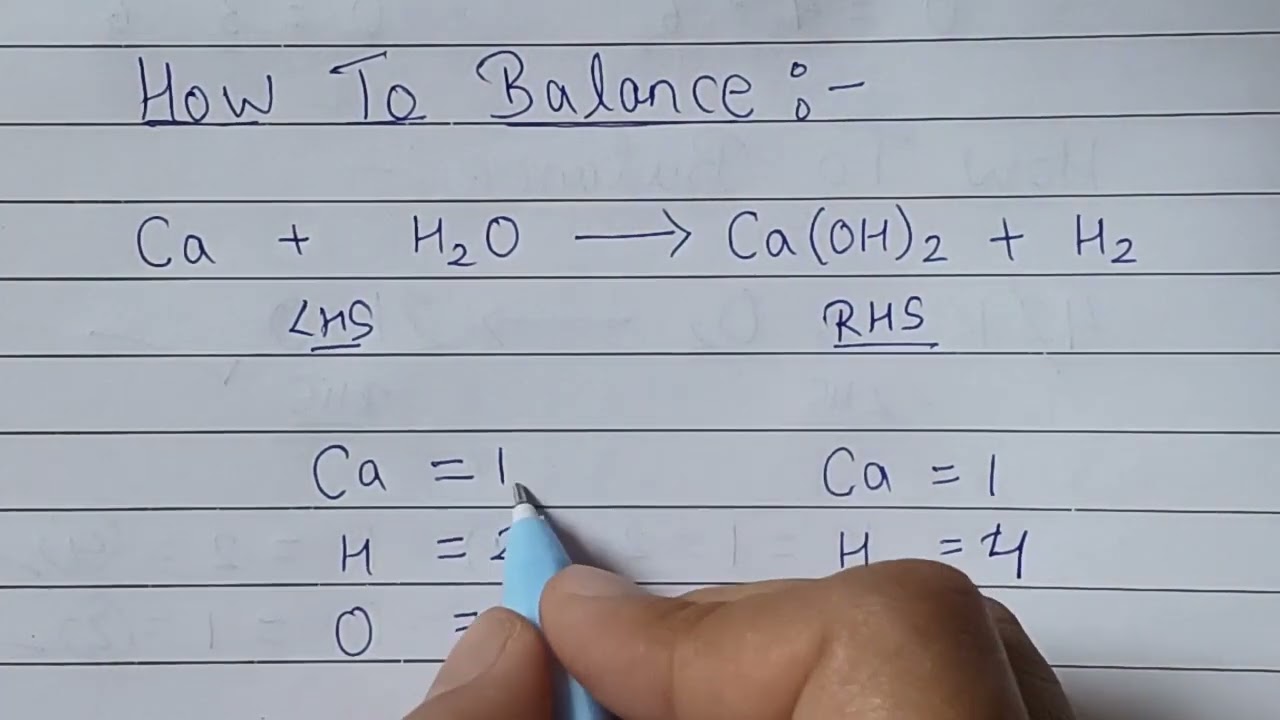 How To Balance :-
Ca + H₂O → Ca(OH)₂ + H₂
LHS RHS
Ca = 1 Ca = 1
H = 2 H = 4
O =